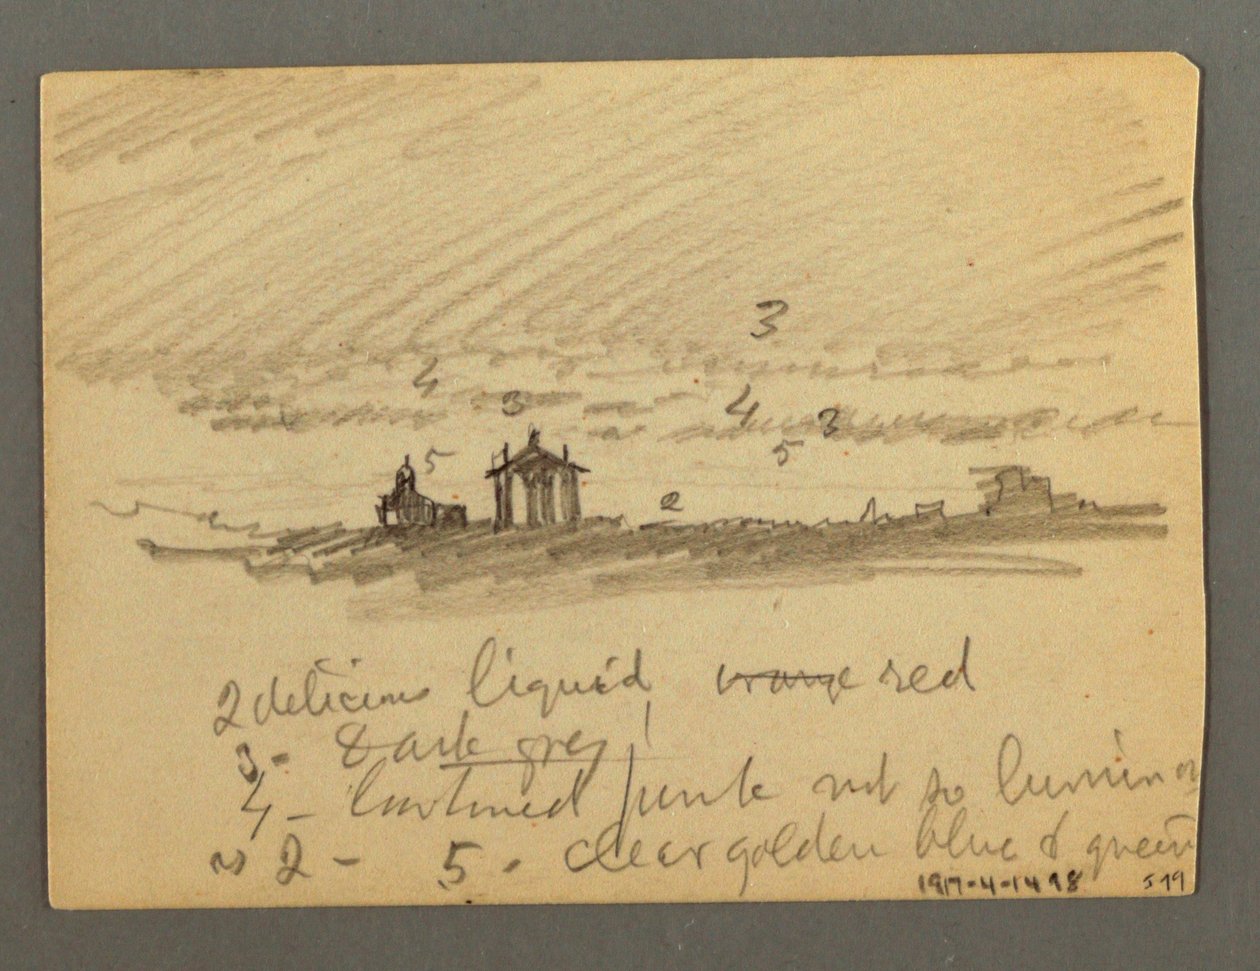 3
4
3
4
3
5
5
2
2 delicious liquid orange red
3 - dark grey
4 - pink not so luminos
as 2 - 5 - clear golden blue & green
1917-4-1498
519